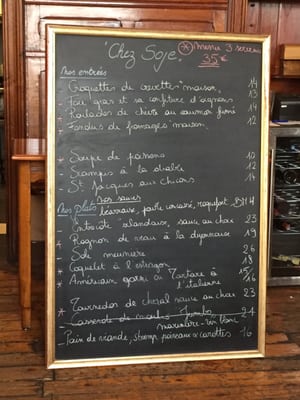 "Chez Soje"
* Menu 3 services
35 €
Nos entrées
Croquettes de crevettes "maison" 14
Foie gras et sa confiture d'oignons 13
* Roulades de chicons au saumon fumé 14
* Fondus de fromages "maison" 12
* Soupe de poissons 10
* Scampis à la diable 12
St Jacques aux chicons 14
Nos sauces
Nos plats béarnaise, poivre concassé, roquefort 4
Entrecôte irlandaise, sauce au choix 23
* Rognon de veau à la dijonnaise 19
Sole meunière 26
* Coquelet à l'estragon 18
* Américain garni ou Tartare à 15/
l'italienne 16
Tournedos de cheval sauce au choix 23
* Casserole de moules Jumbo 24
marinière - vin blanc
Pain de viande, stoemp, poireaux & carottes 16